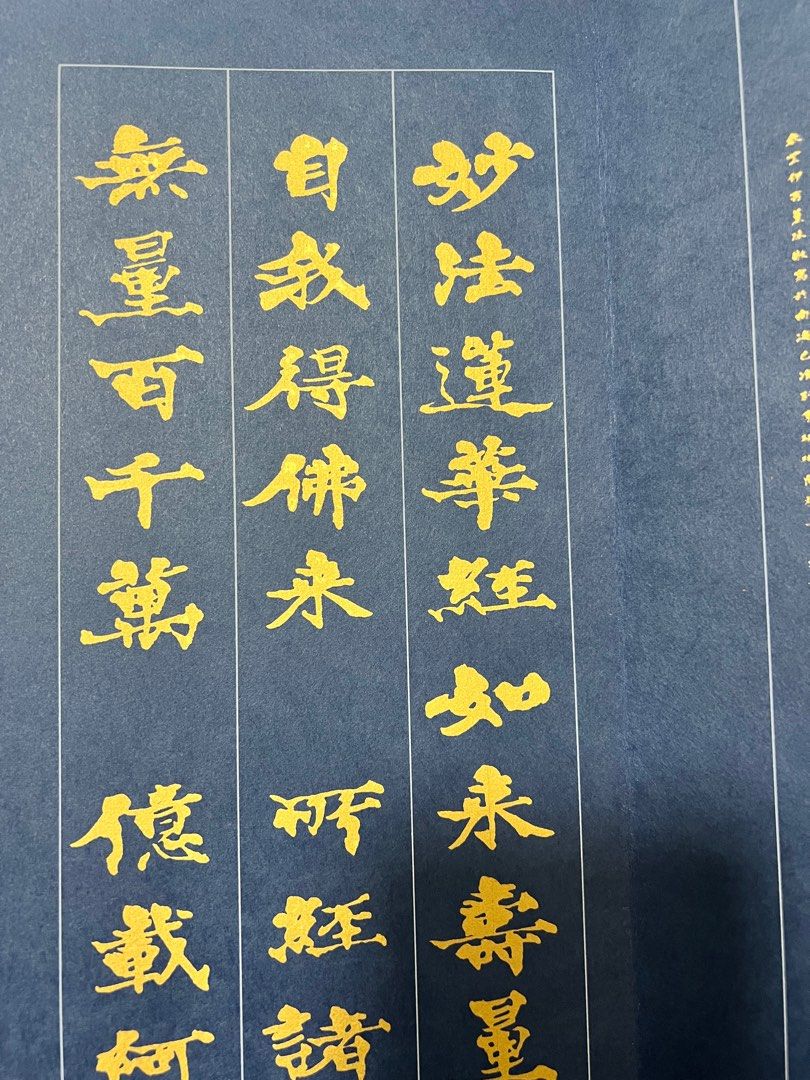 妙法蓮華経如来壽量
自我得佛来 所経諸
無量百千萬 億載阿